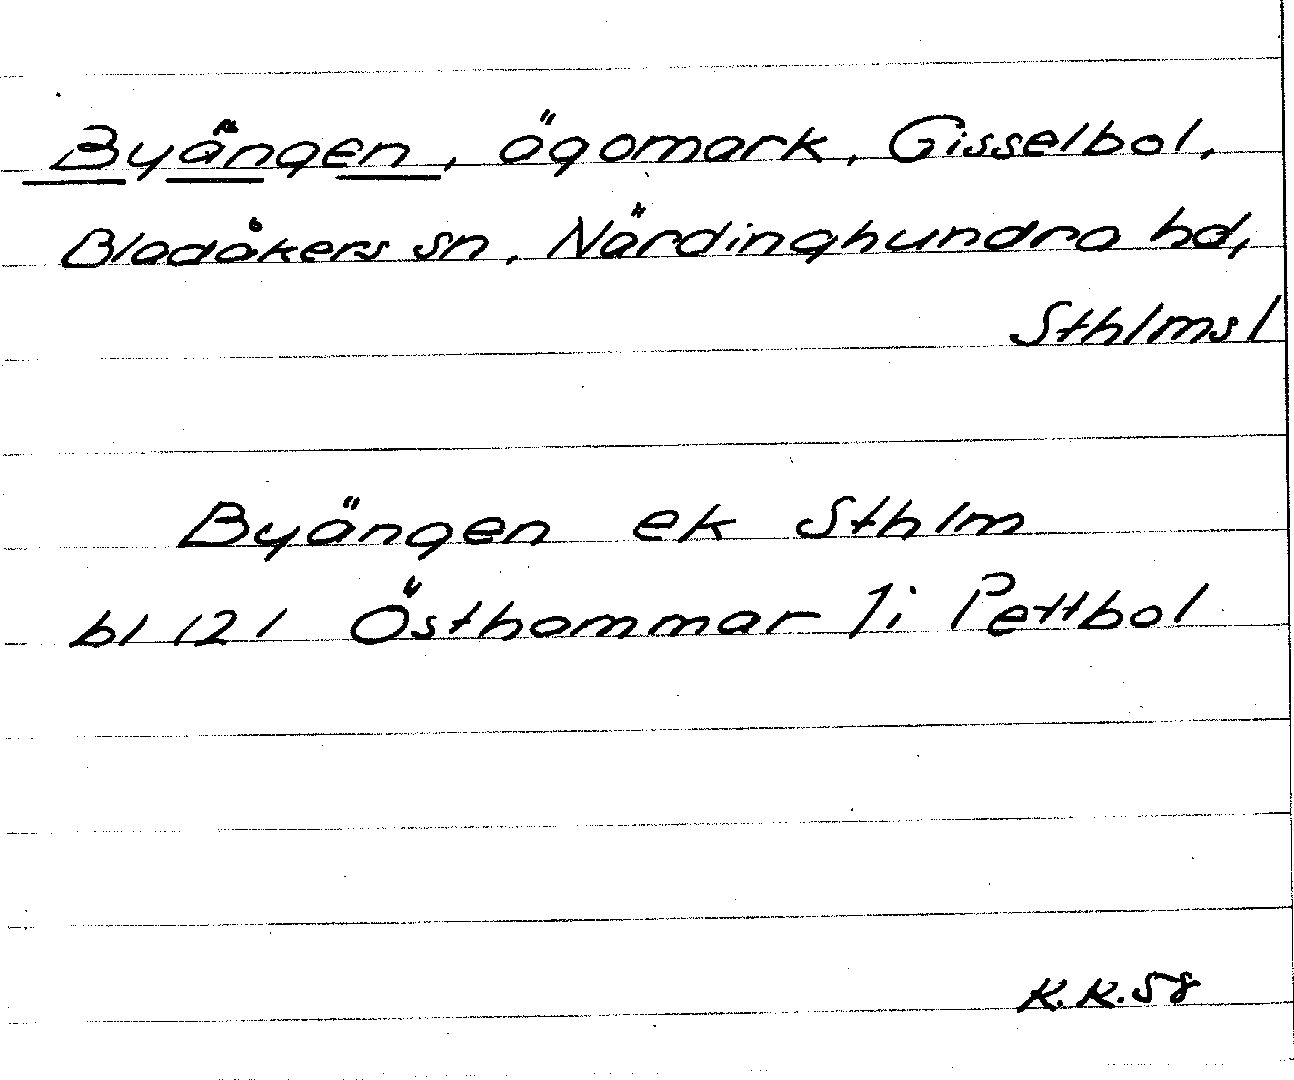 Byängen, ägomark, Gisselbol,
Bladåkers sn, Närdinghundra hd,
Sthlmsl
Byängen ek Sthlm
bl 121 Östhammar Ji Pettbol
K.K.58